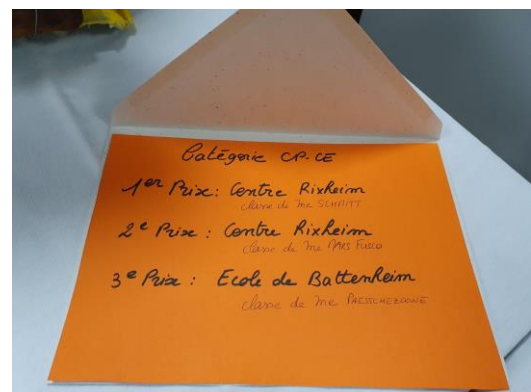 Catégorie CP-CE
1er Prix: Centre Rixheim
classe de Me SCHMITT
2e Prix : Centre Rixheim
classe de Me MARS FUSCO
3e Prix : Ecole de Battenheim
classe de Me